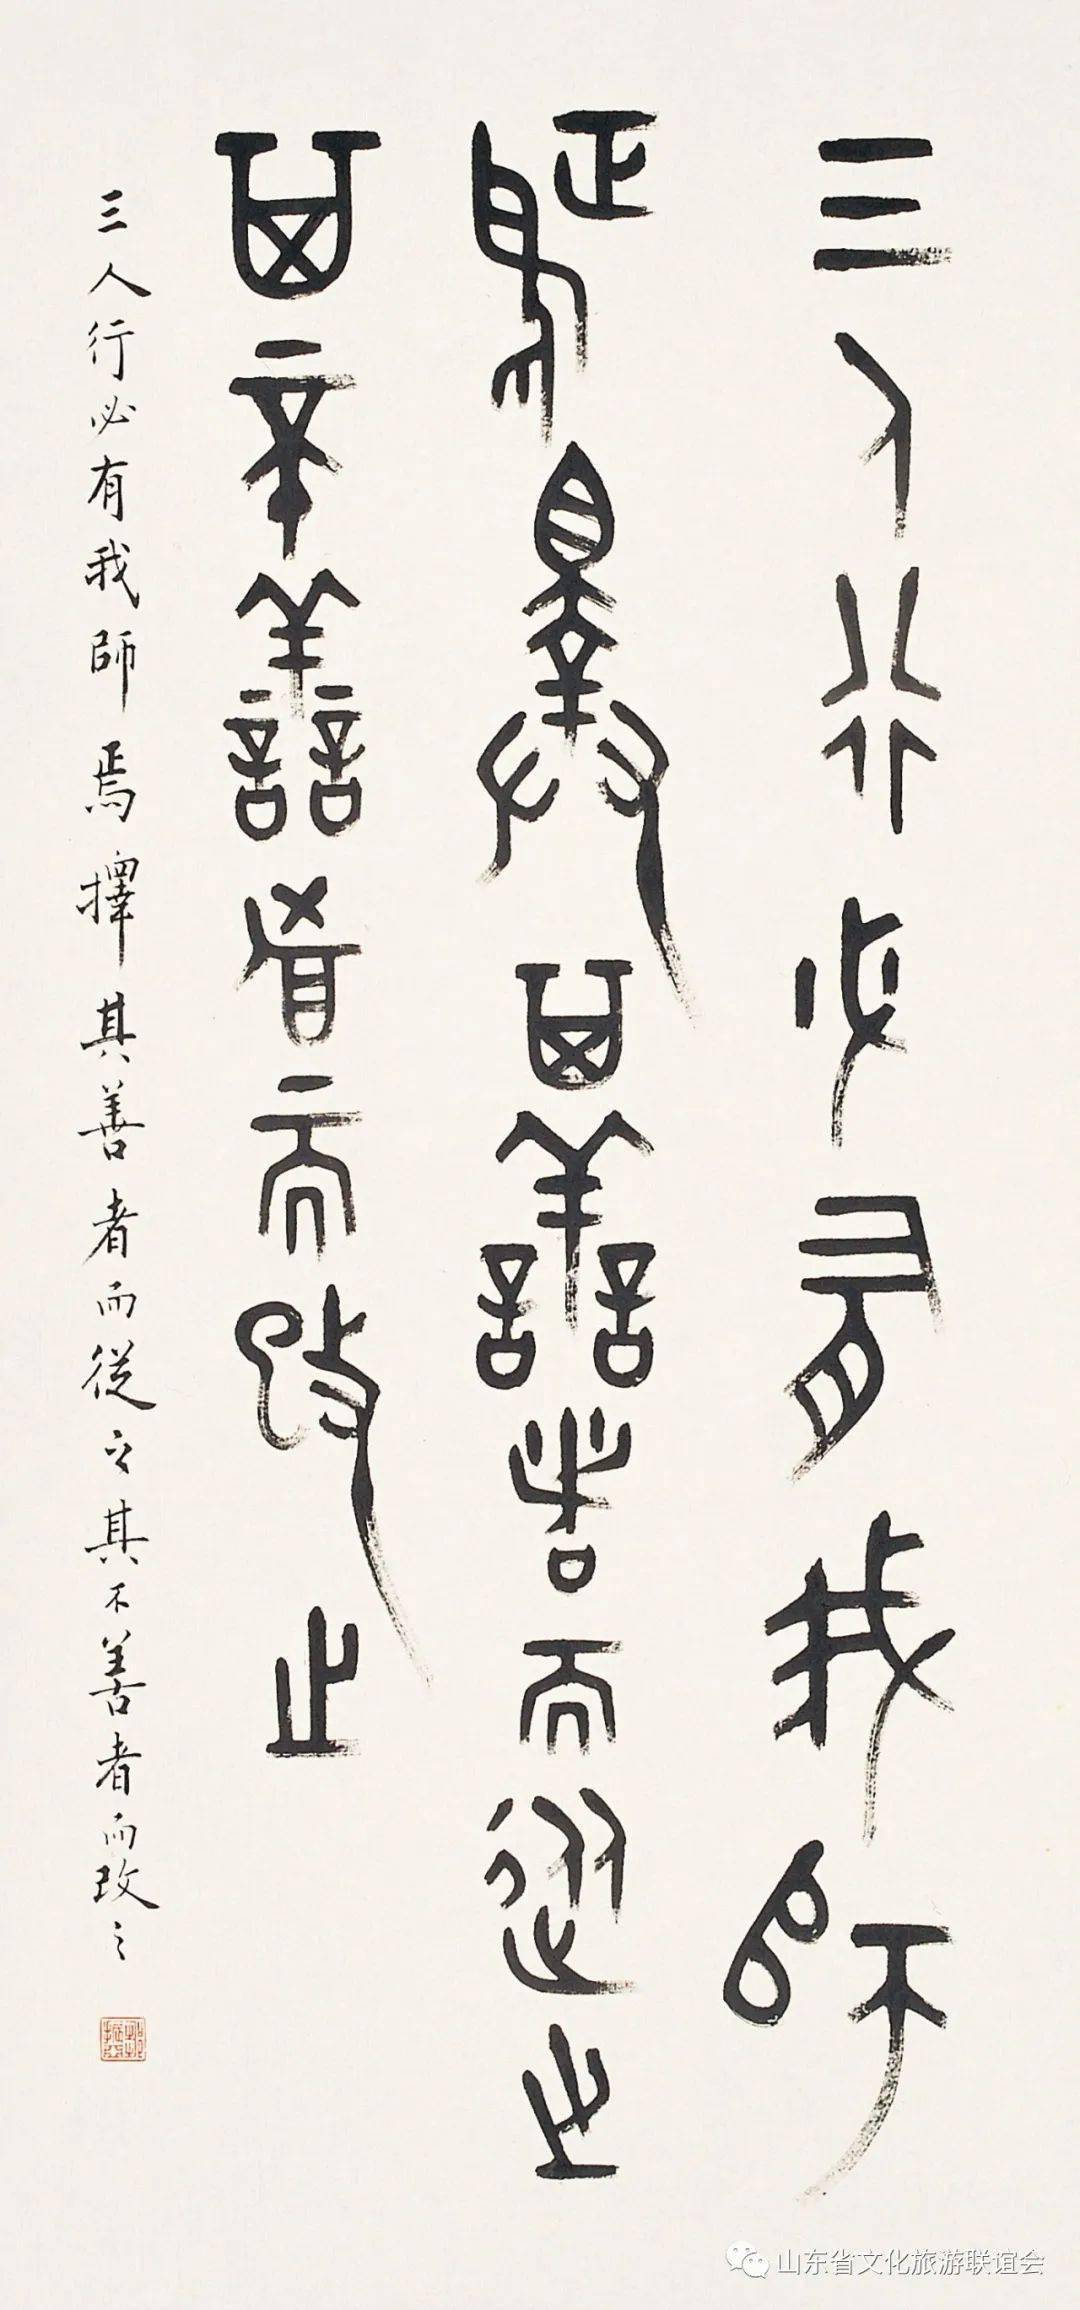 三人行必有我師
焉擇其善者而從之
其不善者而改之
三人行必有我師焉擇其善者而從之其不善者而改之
山东省文化旅游联谊会